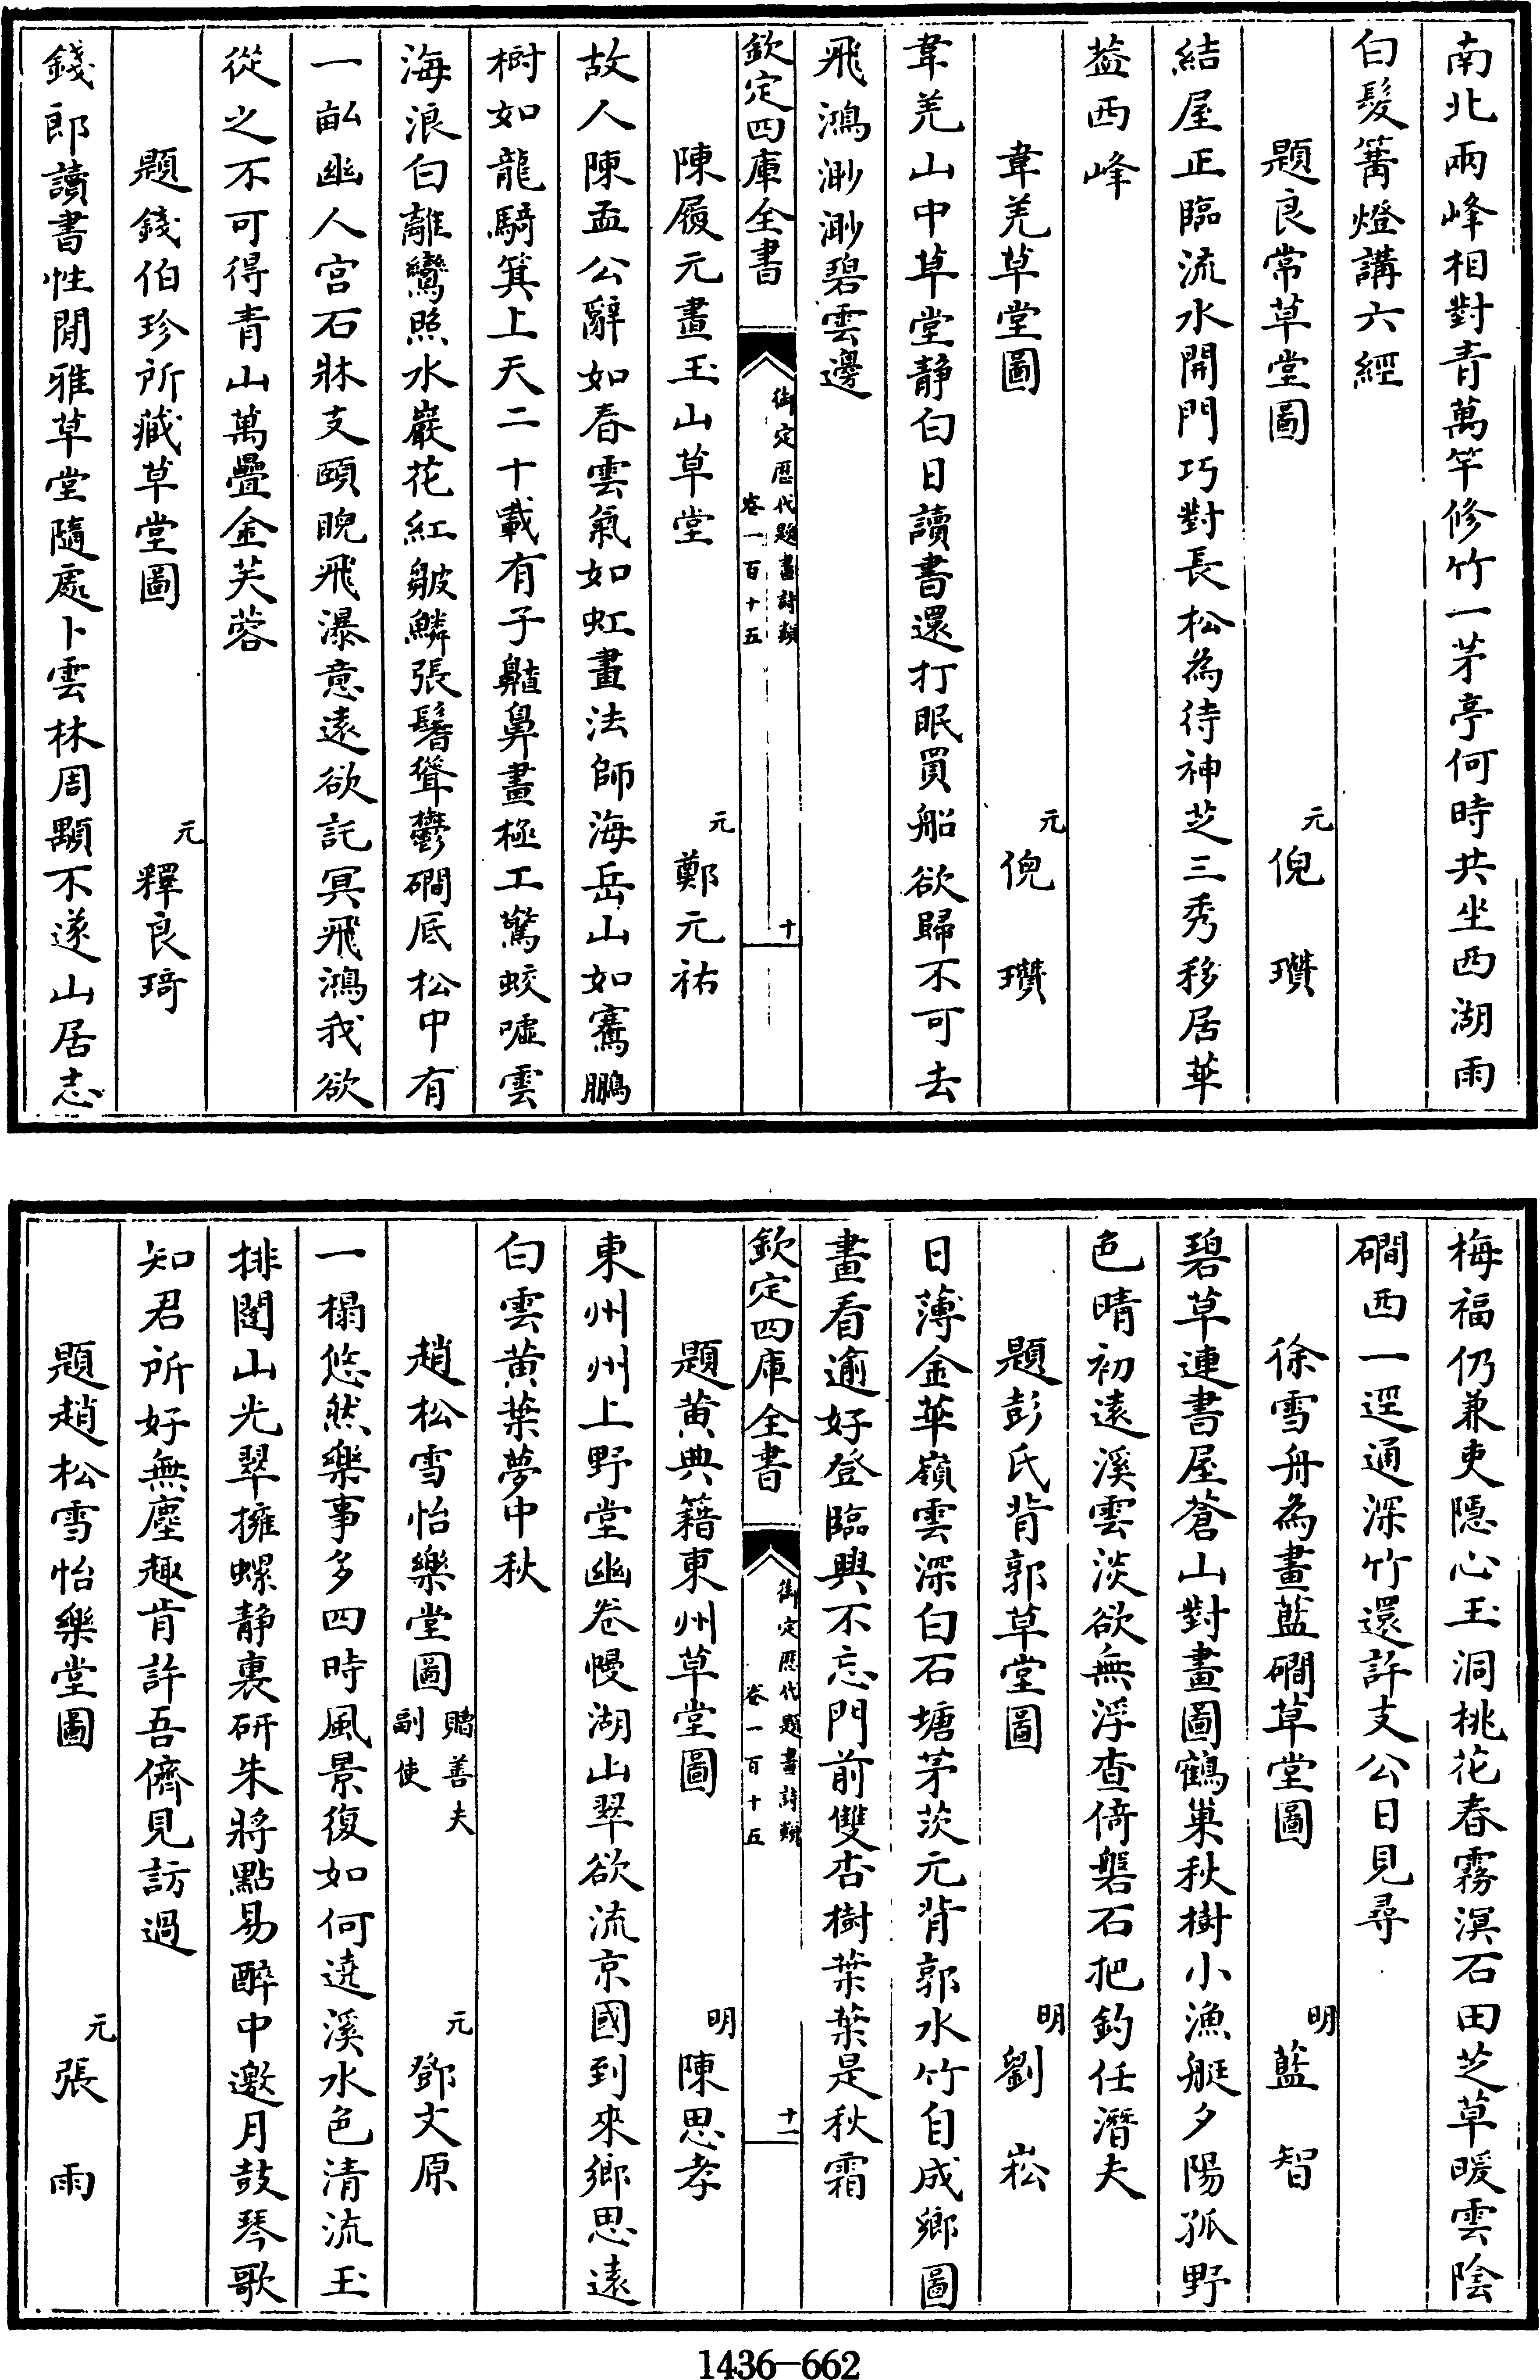 南北兩峰相對青萬竿修竹一茅亭何時共坐西湖雨
白髮篝燈講六經
題良常草堂圖 元 倪瓚
結屋正臨流水開門巧對長松為待神芝三秀移居華
葢西峰
韋羌草堂圖 元 倪瓚
韋羌山中草堂靜白日讀書還打眠買船欲歸不可去
飛鴻渺渺碧雲邊
欽定四庫全書 御定歷代題畫詩類 卷一百十五 十
陳履元畫玉山草堂 元 鄭元祐
故人陳孟公辭如春雲氣如虹畫法師海岳山如騫鵬
樹如龍騎箕上天二十載有子鼪鼻畫極工驚蛟噓雲
海浪白離鸞照水巖花紅皴鱗張鬐聳鬱磵底松中有
一畝幽人宮石牀支頤睨飛瀑意遠欲託冥飛鴻我欲
從之不可得青山萬疊金芙蓉
題錢伯珍所藏草堂圖 元 釋良琦
錢郎讀書性閒雅草堂隨處卜雲林周顒不遂山居志
梅福仍兼吏隱心玉洞桃花春霧溟石田芝草暖雲陰
磵西一逕通深竹還許支公日見尋
徐雪舟為畫藍磵草堂圖 明 藍智
碧草連書屋蒼山對畫圖鶴巢秋樹小漁艇夕陽孤野
色晴初遠溪雲淡欲無浮查倚磐石把釣任潛夫
題彭氏背郭草堂圖 明 劉崧
日薄金華嶺雲深白石塘茅茨元背郭水竹自成鄉圖
畫看逾好登臨興不忘門前雙杏樹葉葉是秋霜
欽定四庫全書 御定歷代題畫詩類 卷一百十五 十一
題黄典籍東州草堂圖 明 陳思孝
東州州上野堂幽卷幔湖山翠欲流京國到來鄉思遠
白雲黄葉夢中秋
趙松雪怡樂堂圖 贈善夫副使 元 鄧文原
一榻悠然樂事多四時風景復如何遶溪水色清流玉
排闥山光翠擁螺靜裏研朱將點易醉中邀月鼓琴歌
知君所好無塵趣肯許吾儕見訪過
題趙松雪怡樂堂圖 元 張雨
1436-662